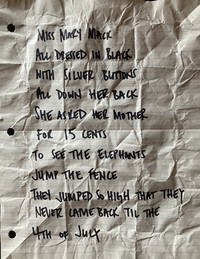 MISS MARY MACK
ALL DRESSED IN BLACK
WITH SILVER BUTTONS
ALL DOWN HER BACK
SHE ASKED HER MOTHER
FOR 15 CENTS
TO SEE THE ELEPHANTS
JUMP THE FENCE
THEY JUMPED SO HIGH THAT THEY
NEVER CAME BACK TIL THE
4TH OF JULY